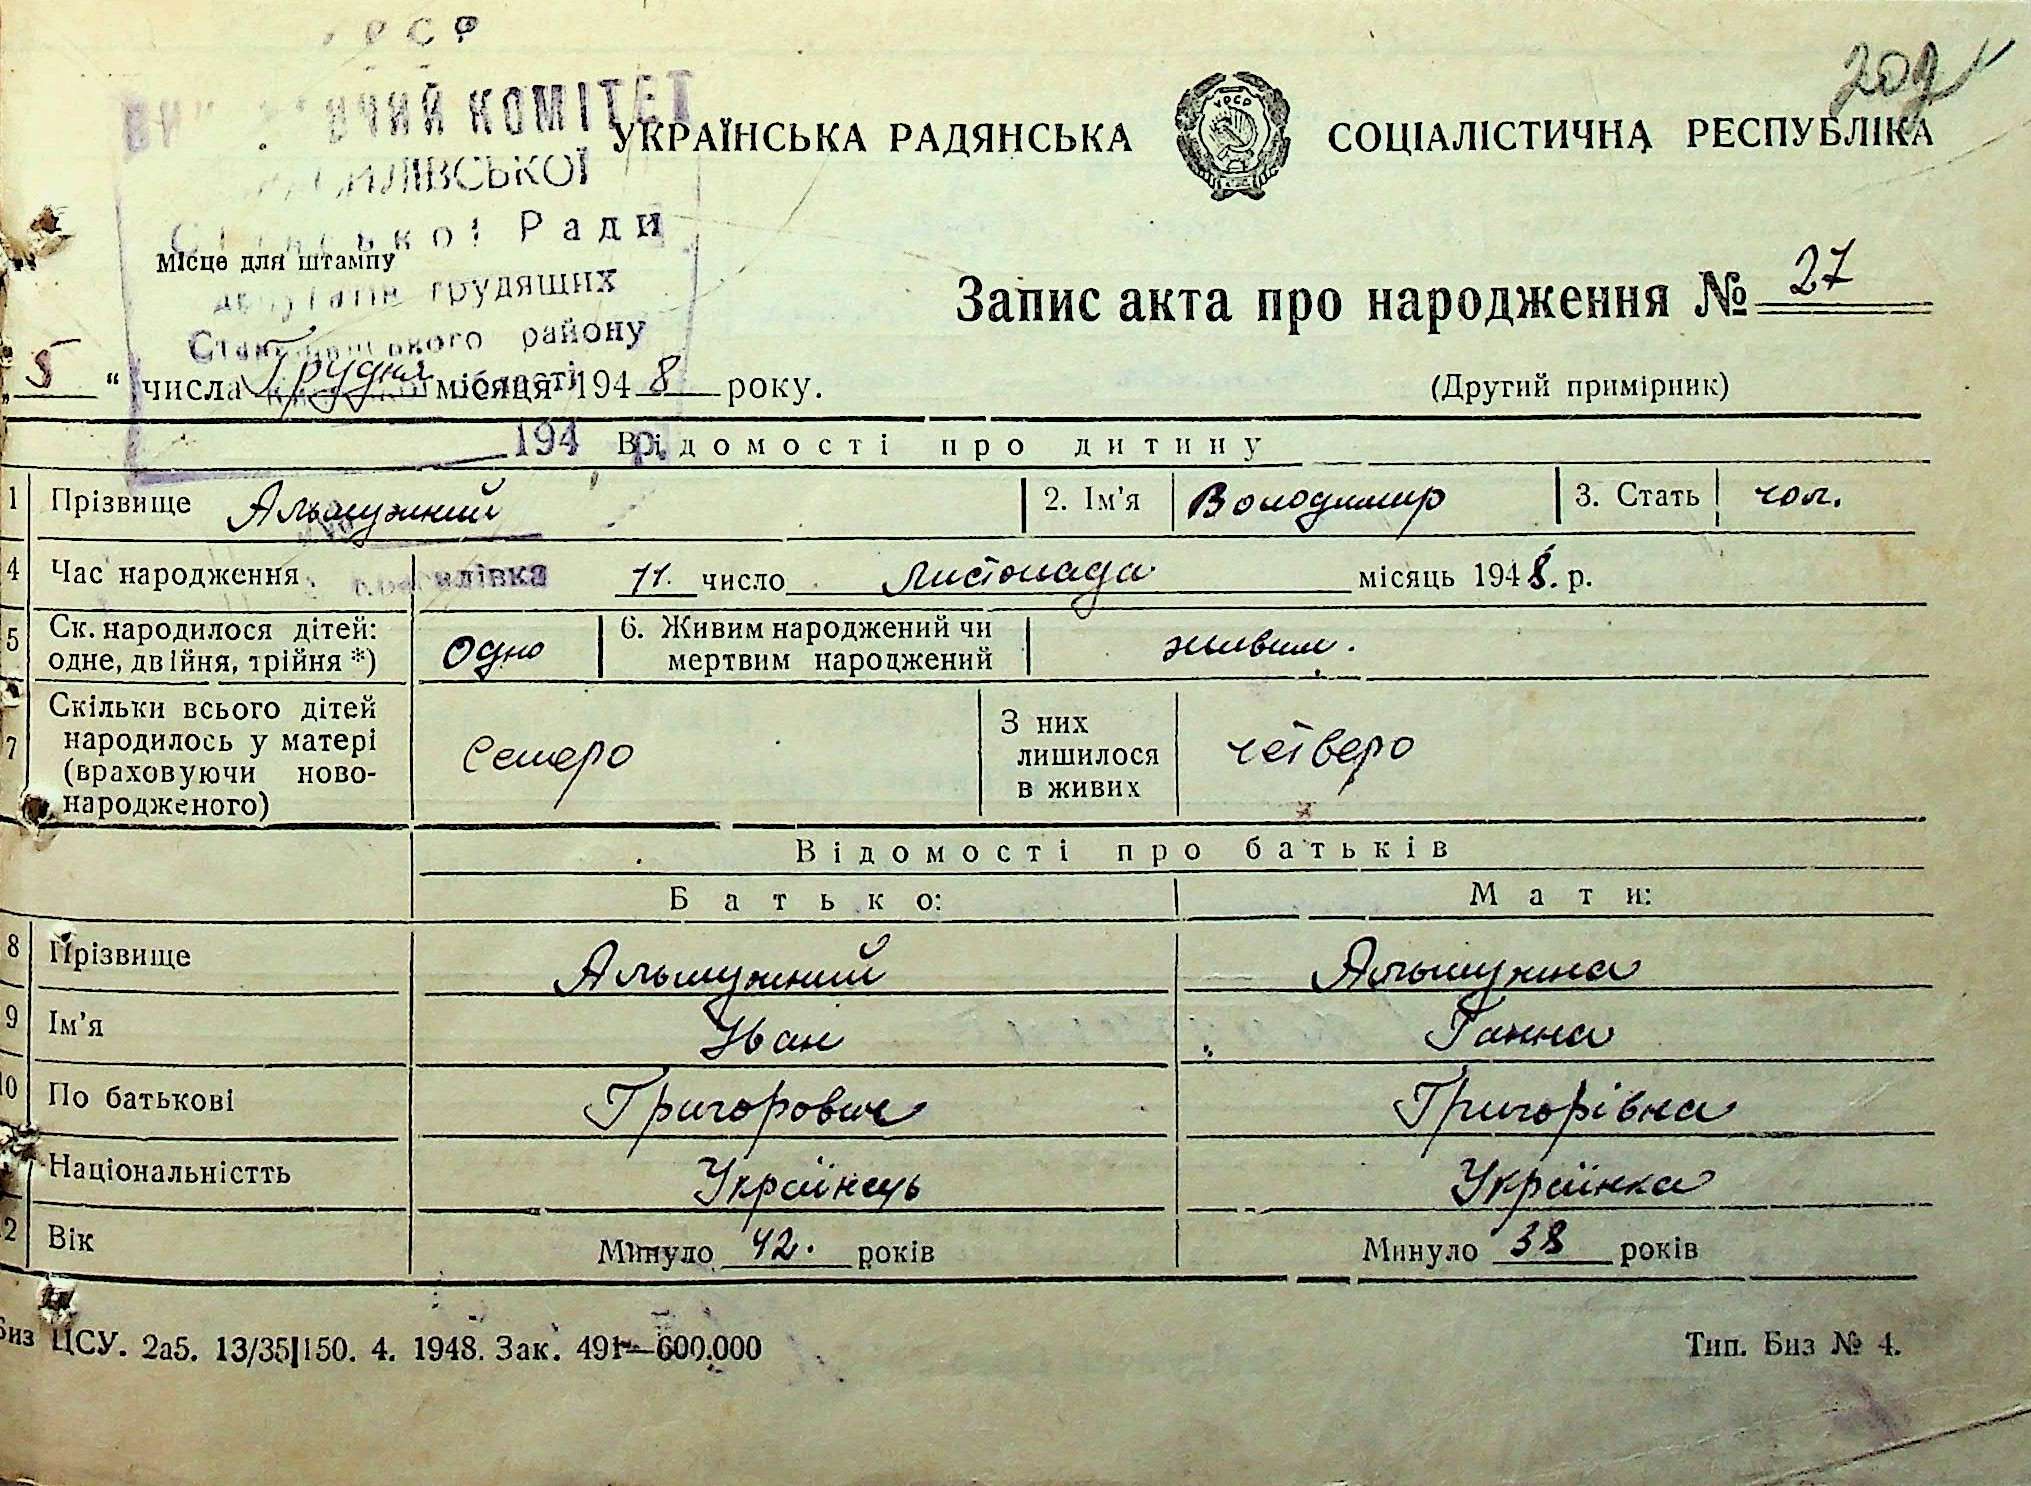 УРСР
КОМІТЕТ
Ради
трудящих
району
області
194 р.
209
УКРАЇНСЬКА РАДЯНСЬКА СОЦІАЛІСТИЧНА РЕСПУБЛІКА
УРСР
Місце для штампу
Запис акта про народження № 27
„5“ числа Грудня місяця 1948 року.
(Другий примірник)
Відомості про дитину
1 Прізвище Альшужний 2. Ім'я Володимир 3. Стать чол.
4 Час народження 11. число листопада місяць 1948. р.
5 Ск. народилося дітей: одне, двійня, трійня *) Одно 6. Живим народжений чи мертвим народжений живим.
7 Скільки всього дітей народилось у матері (враховуючи ново-народженого) Семеро З них лишилося в живих четверо
Відомості про батьків
Батько: Мати:
8 Прізвище Альшужний Альшужна
9 Ім'я Іван Ганна
10 По батькові Григорович Григорівна
Національністть Українець Українка
12 Вік Минуло 42. років Минуло 38 років
Биз ЦСУ. 2а5. 13/35|150. 4. 1948. Зак. 491—600.000
Тип. Биз № 4.